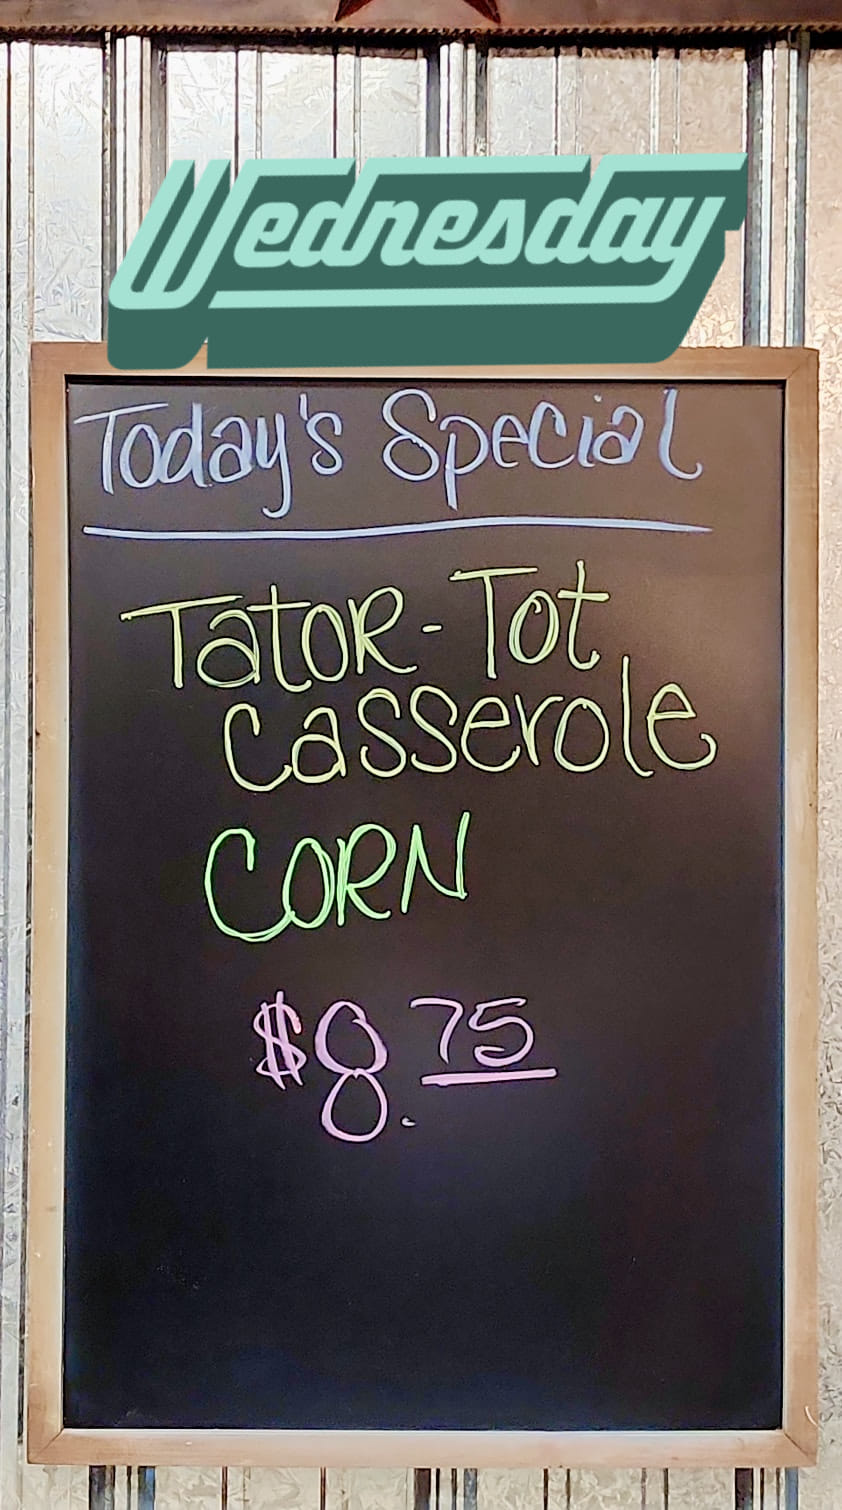 Wednesday
Today's Special
Tator-Tot
Casserole
CORN
$8.75